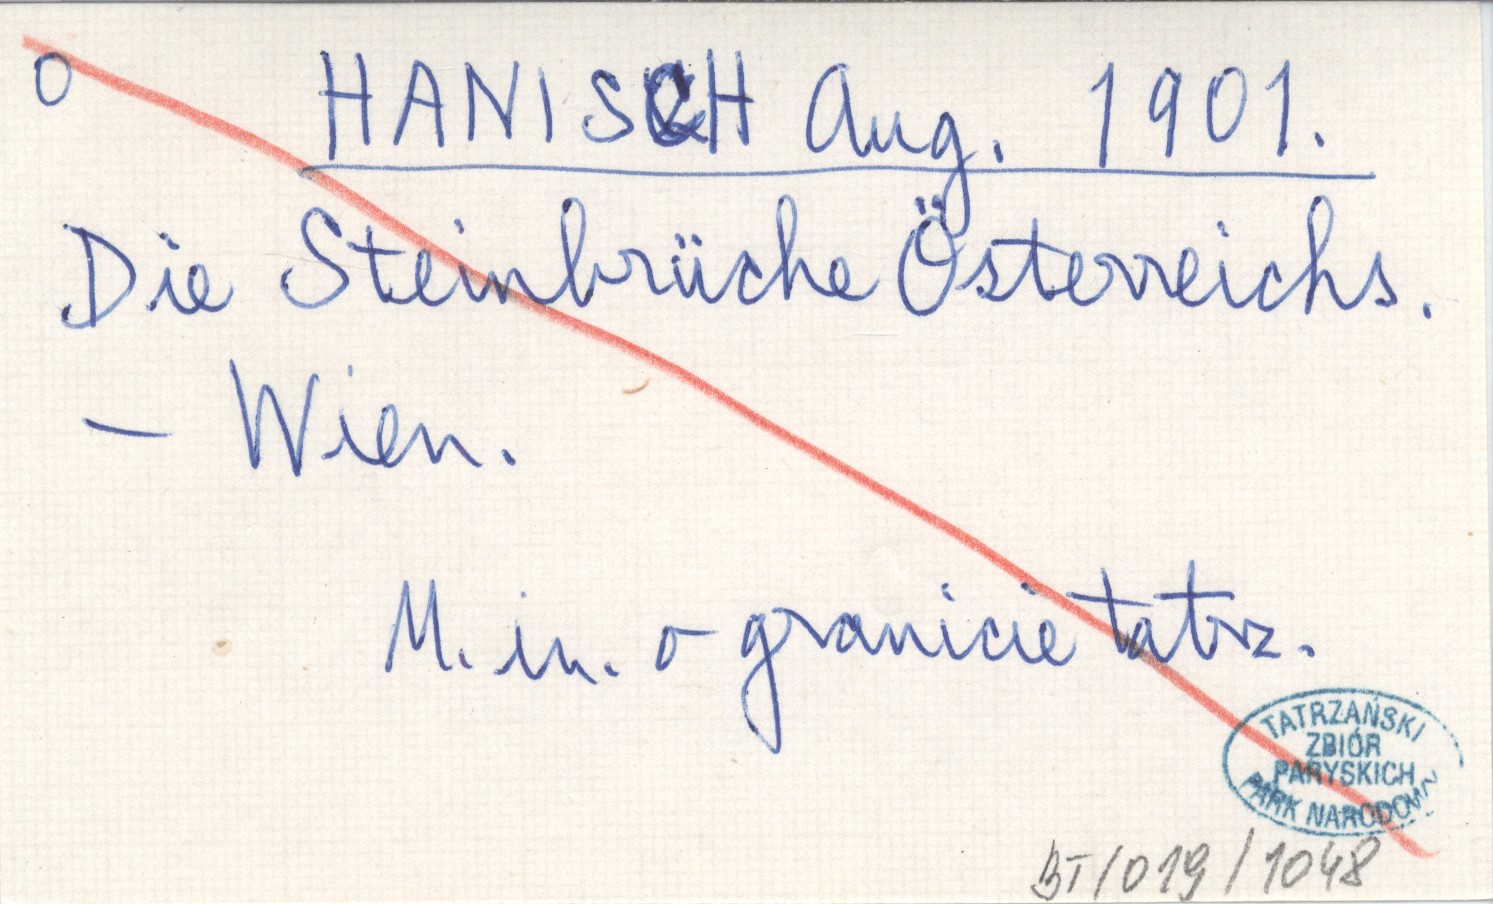 o HANISCH Aug. 1901.
Die Steinbrüche Österreichs.
– Wien.
M. in. o granicie tatrz.
TATRZAŃSKI
ZBIÓR
PARYSKICH
PARK NARODOWY
BT/019/1048